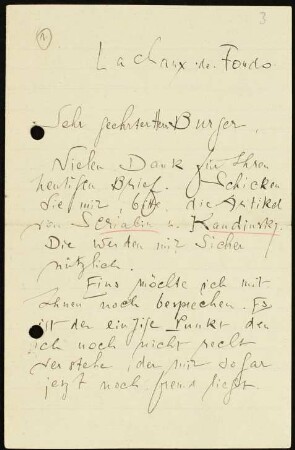 3
1
La Chaux de Fonds.
Sehr geehrter Herr Burger,
Vielen Dank für Ihren
heutigen Brief. Schicken
Sie mir, bitte, die Artikel
von Scriabin u. Kandinsky.
Die werden mir sicher
nützlich.
Eins möchte ich mit
Ihnen noch besprechen. Es
ist der einzige Punkt den
ich noch nicht recht
verstehe, der mir sogar
jetzt noch fremd liegt.